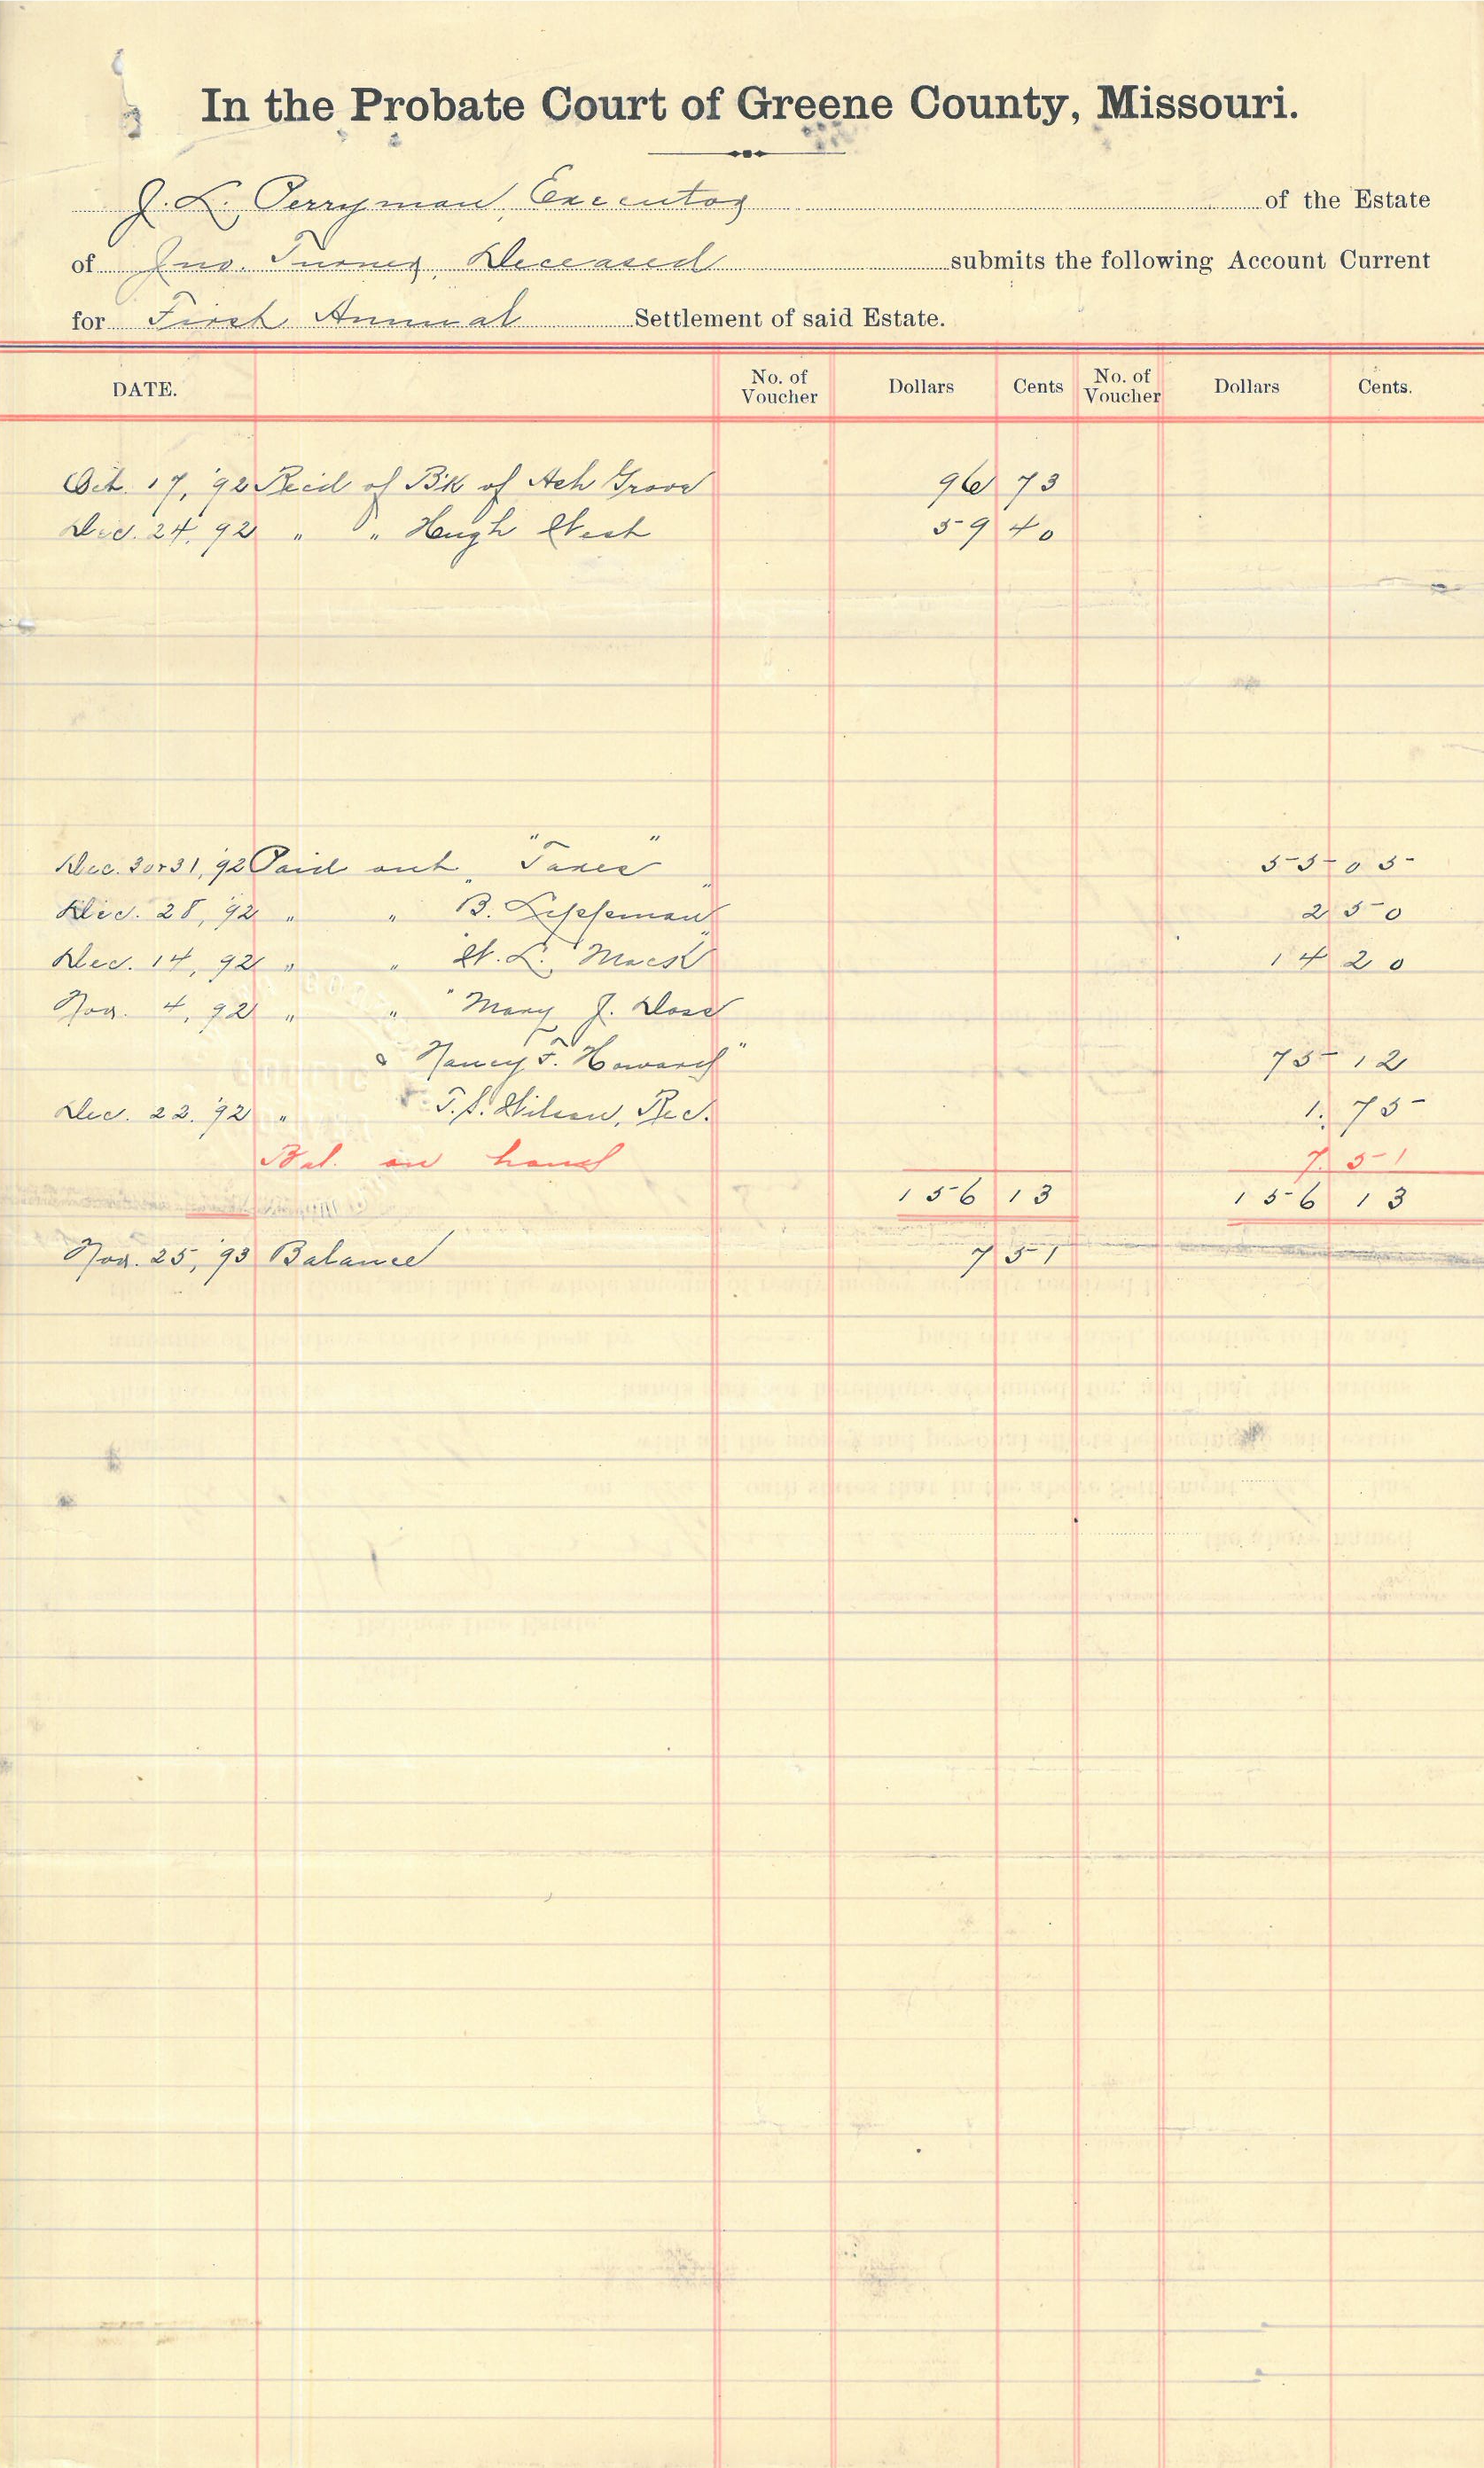 In the Probate Court of Greene County, Missouri.
J. L. Perryman, Executor of the Estate
of Jno. Turner, Deceased submits the following Account Current
for First Annual Settlement of said Estate.
DATE. No. of Voucher Dollars Cents No. of Voucher Dollars Cents.
Oct. 17, '92 Rec'd of B'k of Ash Grove 96 73
Dec. 24, 92 " " Hugh West 59 40
Dec. 30 or 31, '92 Paid out "Taxes" 55 05
Dec. 28, '92 " " B. Lippman" 2 50
Dec. 14, 92 " " W. L. Mack" 14 20
Nov. 4, 92 " " "Mary J. Doss
& Nancy F. Howard" 75 12
Dec. 22. '92 " T. S. Wilson, Rec. 1. 75
Bal. on hand 7. 51
156 13 156 13
Nov. 25, '93 Balance 7 51